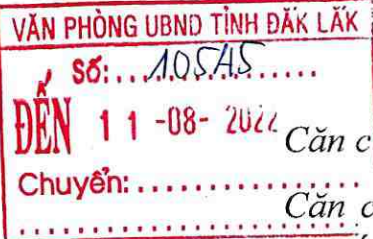 VĂN PHÒNG UBND TỈNH ĐĂK LĂK
Số:...10545............
ĐẾN 11-08-2022
Căn c
Chuyển:...................
Căn c